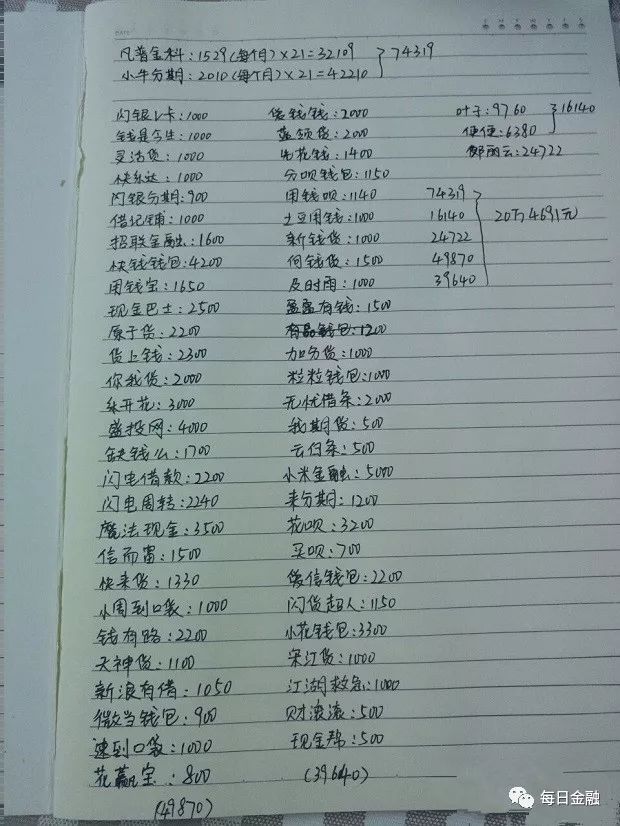 DATE
凡普金科：1529(每个月)×21=32109
小牛分期：2010(每个月)×21=42210
74319
闪银V卡：1000
钱是今生：1000
灵活贷：1000
快乐达：1000
闪银分期：900
借记铺：1000
招联金融：1600
快钱钱包：4200
用钱宝：1650
现金巴士：2500
原子贷：2200
贷上钱：2300
你我贷：2000
乐开花：3000
盛投网：4000
缺钱么：1700
闪电借款：2200
闪电周转：2240
魔法现金：3500
信而富：1500
快来贷：1330
小周到口袋：1000
钱有路：2200
天神贷：1100
新浪有借：1050
微当钱包：900
速到口袋：1000
花赢宝：800
(49870)
贷钱钱：2000
蓝领贷：2000
先花钱：1400
分呗钱包：1150
用钱呗：1140
土豆用钱：1000
新钱贷：1000
何钱贷：1500
及时雨：1000
盈盈有钱：1500
有品钱包：1200
加分贷：1000
粒粒钱包：1000
无忧借条：2000
我期贷：500
云白条：500
小米金融：5000
来分期：1200
花呗：3200
买呗：700
爱信钱包：2200
闪贷超人：1150
小花钱包：3300
宋江贷：1000
江湖救急：1000
财滚滚：500
现金帮：500
(39640)
叶子：9760
便便：6380
16140
邹丽云：24722
74319
16140
24722
49870
39640
20万4691元
每日金融